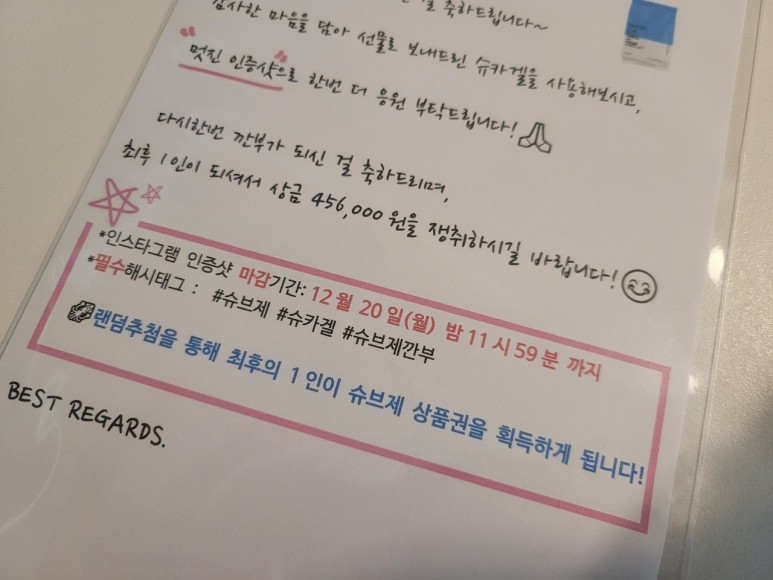 걸 축하드립니다~
감사한 마음을 담아 선물로 보내드린 슈카겔을 사용해보시고,
"멋진 인증샷"으로 한번 더 응원 부탁드립니다!
다시한번 깐부가 되신 걸 축하드리며,
최후 1인이 되셔서 상금 456,000원을 쟁취하시길 바랍니다!
*인스타그램 인증샷 마감기간: 12월 20일(월) 밤 11시 59분 까지
*필수해시태그 : #슈브제 #슈카겔 #슈브제깐부
랜덤추첨을 통해 최후의 1인이 슈브제 상품권을 획득하게 됩니다!
BEST REGARDS.